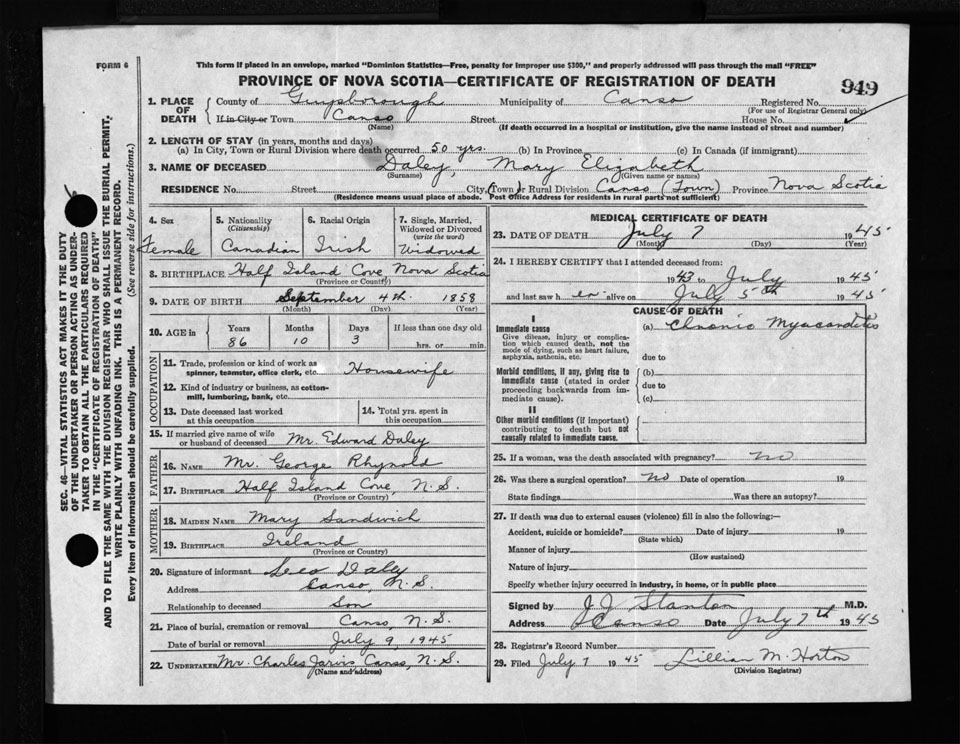 FORM 6
This form if placed in an envelope, marked "Dominion Statistics—Free, penalty for improper use $300," and properly addressed will pass through the mail "FREE"
PROVINCE OF NOVA SCOTIA—CERTIFICATE OF REGISTRATION OF DEATH
949
SEC. 46—VITAL STATISTICS ACT MAKES IT THE DUTY
OF THE UNDERTAKER OR PERSON ACTING AS UNDER-
TAKER TO OBTAIN ALL THE PARTICULARS REQUIRED
IN THE "CERTIFICATE OF REGISTRATION OF DEATH"
AND TO FILE THE SAME WITH THE DIVISION REGISTRAR WHO SHALL ISSUE THE BURIAL PERMIT.
WRITE PLAINLY WITH UNFADING INK. THIS IS A PERMANENT RECORD.
Every item of information should be carefully supplied. (See reverse side for instructions.)
1. PLACE OF DEATH County of Guysborough Municipality of Canso Registered No.
(For use of Registrar General only)
If in City or Town Canso Street House No.
(Name) (If death occurred in a hospital or institution, give the name instead of street and number)
2. LENGTH OF STAY (in years, months and days)
(a) In City, Town or Rural Division where death occurred 50 yrs. (b) In Province (c) In Canada (if immigrant)
3. NAME OF DECEASED Daley, Mary Elizabeth
(Surname) (Given name or names)
RESIDENCE No. Street City, (Town) or Rural Division Canso (Town) Province Nova Scotia
(Residence means usual place of abode. Post Office Address for residents in rural parts not sufficient)
4. Sex 5. Nationality (Citizenship) 6. Racial Origin 7. Single, Married, Widowed or Divorced (write the word)
Female Canadian Irish Widowed
8. BIRTHPLACE Half Island Cove Nova Scotia
(Province or Country)
9. DATE OF BIRTH September 4th. 1858
(Month) (Day) (Year)
10. AGE in Years Months Days If less than one day old
86 10 3 hrs. or min.
OCCUPATION
11. Trade, profession or kind of work as spinner, teamster, office clerk, etc. Housewife
12. Kind of industry or business, as cotton-mill, lumbering, bank, etc.
13. Date deceased last worked at this occupation
14. Total yrs. spent in this occupation
15. If married give name of wife or husband of deceased Mr. Edward Daley
FATHER
16. NAME Mr. George Rhynold
17. BIRTHPLACE Half Island Cove, N.S.
(Province or Country)
MOTHER
18. MAIDEN NAME Mary Sandwich
19. BIRTHPLACE Ireland
(Province or Country)
20. Signature of informant Leo Daley
Address Canso, N.S.
Relationship to deceased Son
21. Place of burial, cremation or removal Canso, N.S.
Date of burial or removal July 9, 1945
22. UNDERTAKER Mr. Charles Jarvis Canso, N.S.
(Name and address)
MEDICAL CERTIFICATE OF DEATH
23. DATE OF DEATH July 7 1945
(Month) (Day) (Year)
24. I HEREBY CERTIFY that I attended deceased from:
1943 to July 1945
and last saw her alive on July 5th 1945
CAUSE OF DEATH
I
Immediate cause
Give disease, injury or complica-
tion which caused death, not the
mode of dying, such as heart failure,
asphyxia, asthenia, etc.
(a) Chronic Myocarditis
due to
Morbid conditions, if any, giving rise to
immediate cause (stated in order
proceeding backwards from im-
mediate cause).
(b)
due to
(c)
II
Other morbid conditions (if important)
contributing to death but not
causally related to immediate cause.
25. If a woman, was the death associated with pregnancy? no
26. Was there a surgical operation? no Date of operation 19
State findings Was there an autopsy?
27. If death was due to external causes (violence) fill in also the following:—
Accident, suicide or homicide? Date of injury 19
(State which)
Manner of injury
(How sustained)
Nature of injury
Specify whether injury occurred in industry, in home, or in public place
Signed by J J Stanton M.D.
Address Canso Date July 7th 1945
28. Registrar's Record Number
29. Filed July 7 1945 Lillian M. Horton
(Division Registrar)